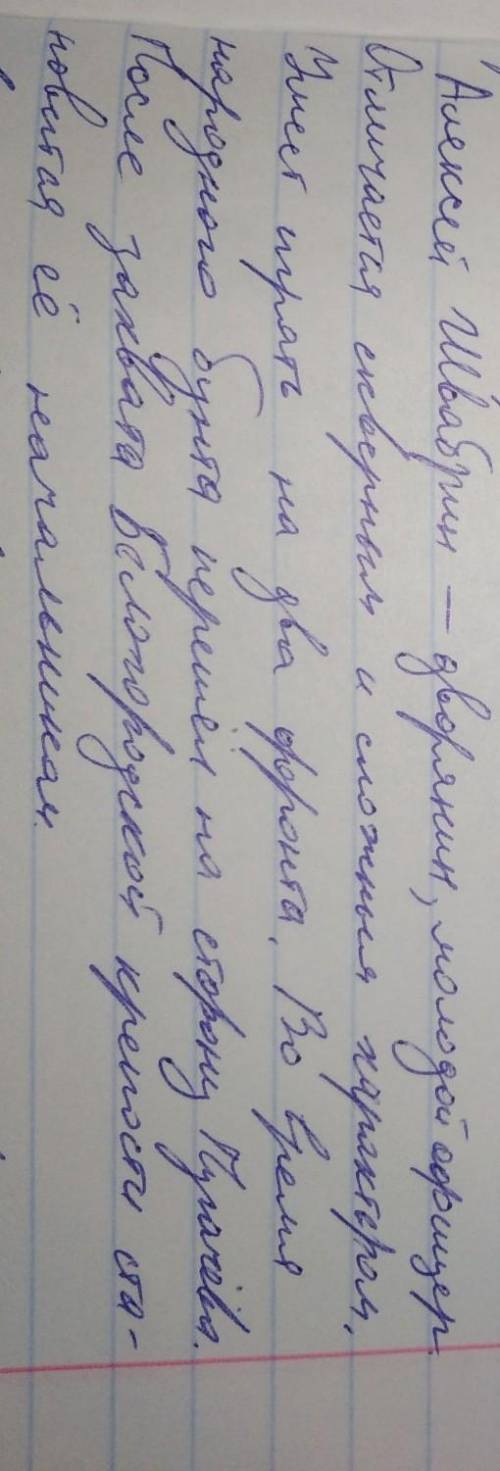 Алексей Швабрин — дворянин, молодой офицер.
Отличается скверным и сложным характером.
Умеет играть на два фронта. Во время
народного бунта перешёл на сторону Пугачёва.
После захвата Белогорской крепости ста-
новится её начальником.